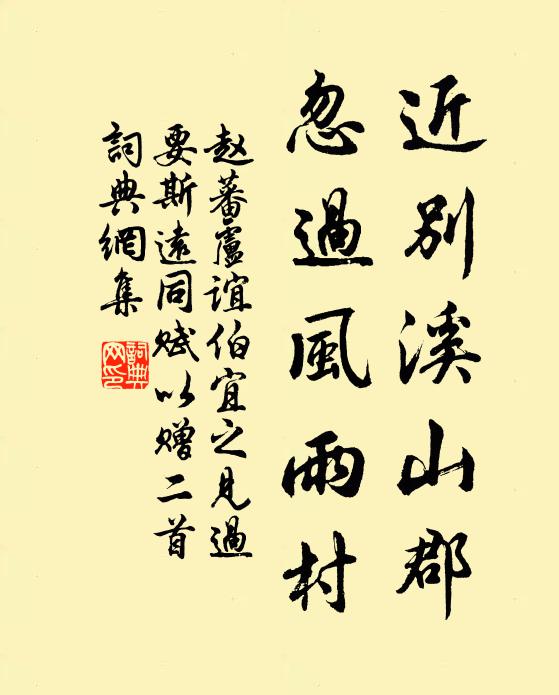 近别溪山郡
忽過風雨村
赵蕃盧誼伯宜之見過
要斯遠同赋以赠二首
詞典網集
詞典
网印